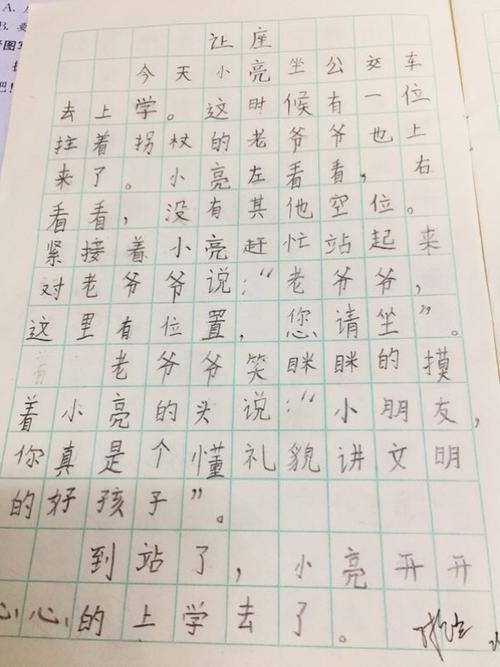 让座
今天小亮坐公交车
去上学。这时候有一位
拄着拐杖的老爷爷也上
来了。小亮左看看，右
看看，没有其他空位。
紧接着小亮赶忙站起来
对老爷爷说：“老爷爷，
这里有位置，您请坐”。
老爷爷笑眯眯的摸
着小亮的头说：“小朋友，
你真是个懂礼貌讲文明
的好孩子”。
到站了，小亮开开
心心的上学去了。